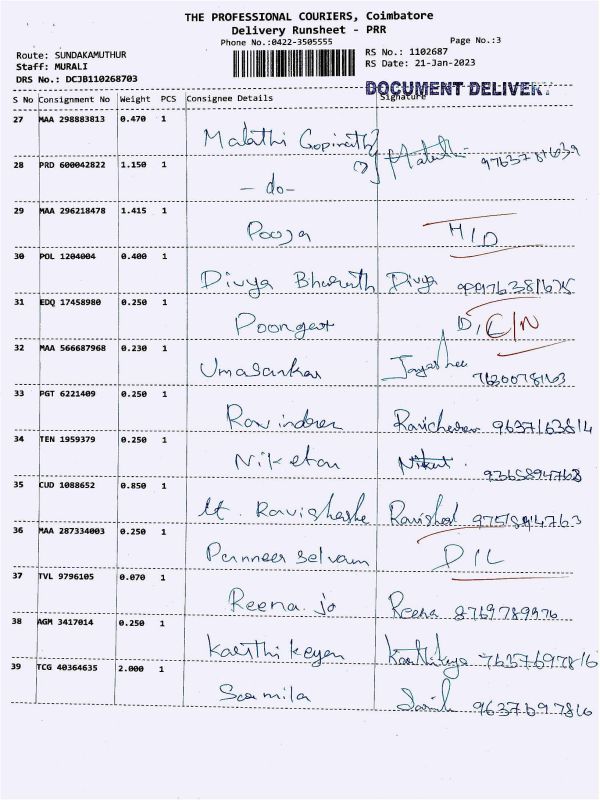 THE PROFESSIONAL COURIERS, Coimbatore
Delivery Runsheet - PRR
Phone No.:0422-3505555
Page No.:3
Route: SUNDAKAMUTHUR
RS No.: 1102687
Staff: MURALI
RS Date: 21-Jan-2023
DRS No.: DCJB110268703
DOCUMENT DELIVER
S No Consignment No Weight PCS Consignee Details Signature
27 MAA 298883813 0.470 1
Malathi Gopinath
28 PRD 600042822 1.150 1
- do -
29 MAA 296218478 1.415 1
Pooja H/D
30 POL 1204004 0.400 1
Divya Bharath Divya
31 EDQ 17458980 0.250 1
D,C/N
32 MAA 566687968 0.230 1
Umasankar Jayashee
33 PGT 6221409 0.250 1
Ravindren 9637163814
34 TEN 1959379 0.250 1
Niketan 9365894768
35 CUD 1088652 0.850 1
9751894763
36 MAA 287334003 0.250 1
Panneer selvam D/L
37 TVL 9796105 0.070 1
Reena. jo Reena 8769789976
38 AGM 3417014 0.250 1
Karthikeyan
39 TCG 40364635 2.000 1
9637697816